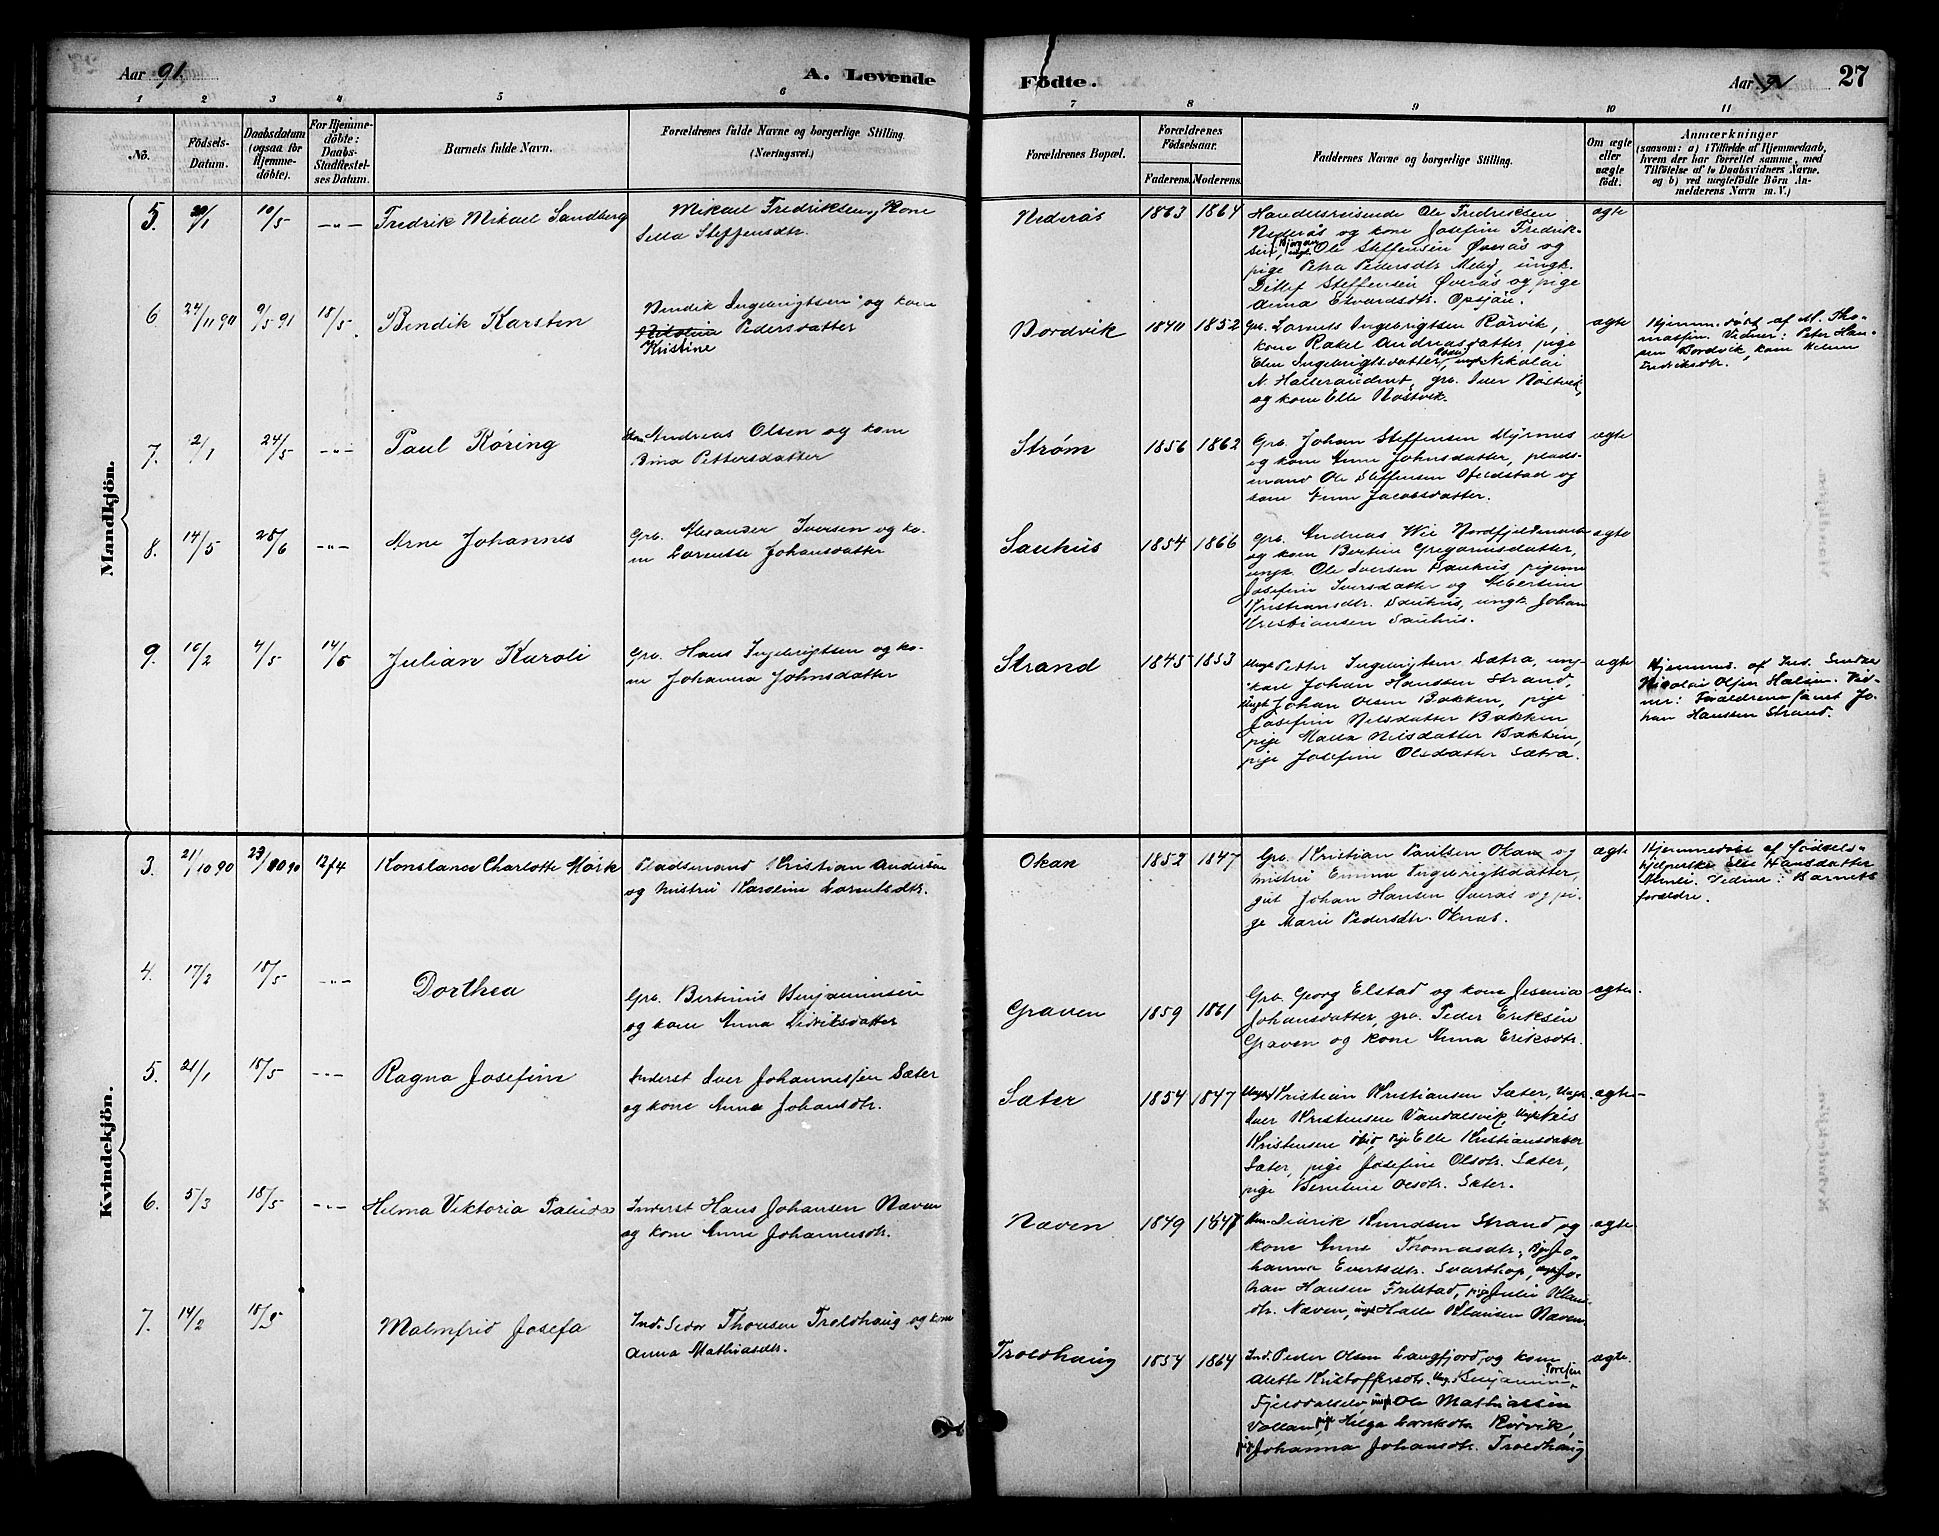 Aar 91.
A. Levende
Födte.
Aar 91
27
1 2 3 4 5 6 7 8 9 10 11
No.
Födsels-
Datum.
Daabsdatum
(ogsaa for
Hjemme-
döbte).
For Hjemme-
döbte:
Daabs-
Stadfæstel-
ses Datum.
Barnets fulde Navn.
Forældrenes fulde Navne og borgerlige Stilling.
(Næringsvei.)
Forældrenes Bopæl.
Forældrenes
Födselsaar.
Faderens. Moderens.
Faddernes Navne og borgerlige Stilling.
Om ægte
eller
uægte
födt.
Anmærkninger
(saasom: a) i Tilfælde af Hjemmedaab,
hvem der har forrettet samme, med
Tilföielse af to Daabsvidners Navne,
og b) ved uægtefödte Börn An-
melderens Navn m. V.)
Mandkjön.
5. 20/1 10/5 -"- Fredrik Mikael Sandberg
Mikael Fredriksen, Kone
Sella Steffensdtr.
Nederås 1863 1864
Handelsreisende Ole Fredriksen
Nederås og kone Josefine Fredrik-
Ole Steffensen Øverås og
pige Petra Pedersdtr. Meby, ungk.
Ditlef Steffensen Øverås og pige
Anna Edvardsdtr. Opsjøn.
ægte
6. 24/11 90 9/5 91 18/5 Bendik Karsten
Bendik Ingebrigtsen og kone
Pedersdatter
Kristine
Nordvik 1840 1852
Grb. Lornts Ingebrigtsen Rörvik,
kone Rakel Andreasdatter, pige
Elen Ingebrigtsdatter, ungk. Nikolai
N. Halsesandent, grb. Iver Nöstvik
og kone Elle Nöstvik.
ægte
Hjemmedöbt af M. Tho-
massen. Vidner: Peter Han-
sen Bordvik, kone Helene
Fredriksdtr.
7. 2/1 24/5 -"- Paul Röring
Andreas Olsen og kone
Bina Pettersdatter
Strøm 1856 1862
Grb. Johan Steffensen Myrnes
og kone Anne Johnsdatter, plads-
mand Ole Steffensen Fjeldstad og
kone Anne Jacobsdatter.
ægte
8. 14/5 28/6 -"- Arne Johannes
Grb. Alexander Iversen og ko-
ne Lorntse Johansdatter
Sauhus 1854 1866
Grb. Andreas Wie Nordfjeldmark
og kone Bertine Gregoriusdatter,
ungk. Ole Iversen Sauhus, pigerne
Josefine Iversdatter og Albertine
Kristiansdtr. Sauhus, ungk. Johan
Kristiansen Sauhus.
ægte
9. 10/2 4/5 14/5 Julian Karoli
Grb. Hans Ingebrigtsen og ko-
ne Johanna Johnsdatter
Strand 1845 1853
Ungk. Petter Ingebrigtsen Sætra, ung-
karl Johan Hanssen Strand,
Ungk. Johan Olsen Bakken, pige
Josefine Nilsdatter Bakken,
pige Malla Nilsdatter Bakken,
pige Josefine Olsdatter Sætra.
ægte
Hjemmed. af Ind.
Nicolai Olsen Halsen. Vid-
ner: Forældrene samt Jo-
han Hanssen Strand.
Kvindekjön.
3. 21/10 90 23/10 90 12/4 Konstance Charlotte Mörk
Pladsmand Kristian Andersen
og hustru Karoline Larntsdtr.
Okan 1852 1847
Gr. Kristian Paulsen Okan og
hustru Emma Ingebrigtsdatter,
gut Johan Hansen Øverås og pi-
ge Marie Pedersdtr. Oknæs.
ægte
Hjemmedöbt af Födsels-
hjelperske Else Hansdatter
Almli. Vidner: Barnets
forældre.
4. 17/2 18/5 -"- Dorthea
Grb. Bertinius Benjaminsen
og kone Anna Didriksdatter
Graven 1859 1861
Grb. Georg Elstad og kone Jesenia
Johansdatter, grb. Peder Eriksen
Graven og kone Anna Eriksdtr.
ægte.
5. 21/1 18/5 -"- Ragna Josefine
Inderst Iver Johannessen Sæter
og kone Anne Johansdtr.
Sæter 1854 1847
Ungk. Kristian Kristiansen Sæter, Ungk.
Iver Kristensen Vandalsvik, Ungk. Nils
Kristensen pige Elle Kristiansdatter
Sæter, pige Josefine Olsdtr. Sæter,
pige Berntine Olsdtr. Sæter.
ægte
6. 5/3 18/5 -"- Helma Viktoria Palida
Inderst Hans Johansen Næven
og kone Anne Johannesdtr.
Næven 1849 1847
Didrik Knudsen Strand og
kone Anne Thomasdtr., pige Jo-
hanna Evertsdtr. Svarthop, ungk. Jo-
han Hansen Frilstad, pige Julie Klaus-
dtr. Næven, ungk. Halle Klausen Næven
ægte
7. 14/2 18/5 Malmfrid Josefa
Ind. Sedor Thoresen Troldhaug og kone
Anna Mathiasdtr.
Troldhaug 1854 1864
Ind. Peder Olsen Langfjord, og kone
Alette Kristoffersdtr. Ungk. Benjamin Toresen
Fjeldalselv, ungk. Ole Mathiassen
Volland, pige Helga Lorntsdtr. Rörvik,
pige Johanna Johansdtr. Troldhaug
ægte.